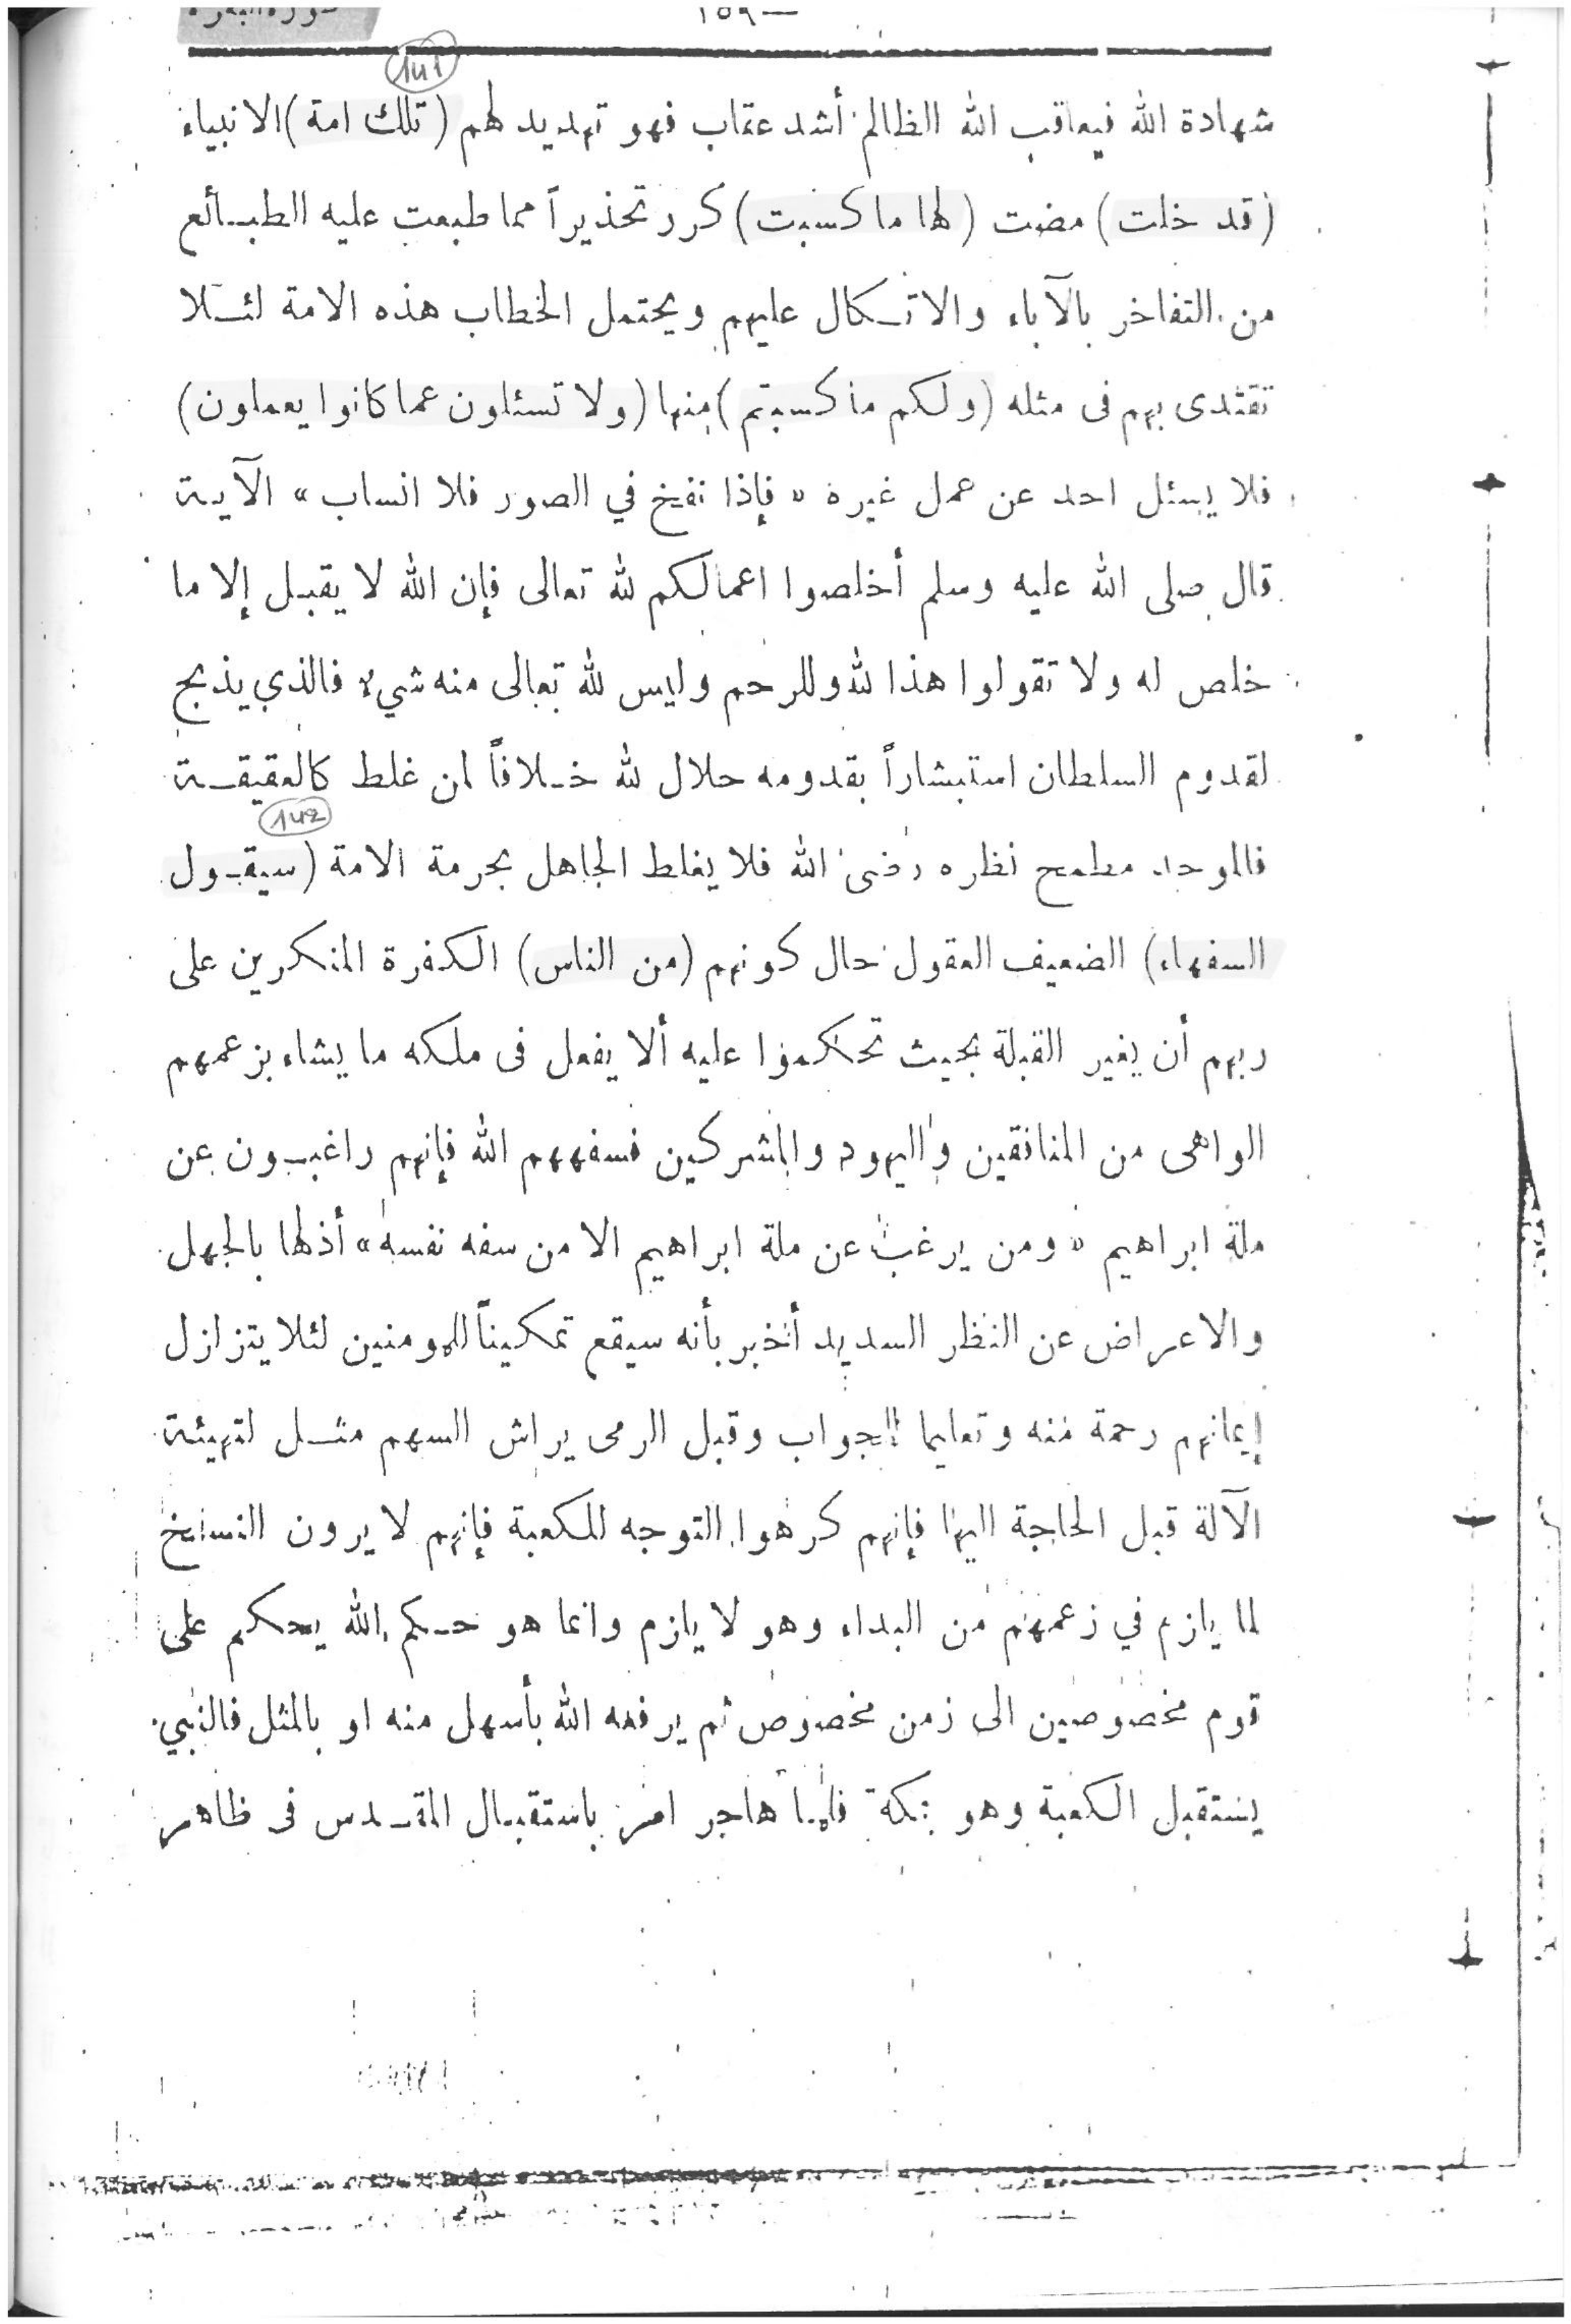 سورة البقرة
١٥٩ —
141
شهادة الله فيعاقب الله الظالم أشد عقاب فهو تهديد لهم (تلك امة) الانبياء
(قد خلت) مضت (لها ما كسبت) كرر تحذيراً مما طبعت عليه الطبـائع
من التفاخر بالآباء والاتـكال عليهم ويحتمل الخطاب هذه الامة لئـلا
تقتدى بهم فى مثله (ولكم ما كسبتم) منها (ولا تسئلون عما كانوا يعملون)
فلا يسئل احد عن عمل غيره « فإذا نفخ في الصور فلا انساب » الآيـة
قال صلى الله عليه وسلم أخلصوا اعمالكم لله تعالى فإن الله لا يقبـل إلا ما
خلص له ولا تقولوا هذا لله وللرحم وليس لله تعالى منه شيء فالذي يذبح
لقدوم السلطان استبشاراً بقدومه حلال لله خـلافاً لمن غلط كالعقيقـة
142
فالموحد مطمح نظره رضى الله فلا يغلط الجاهل بحرمة الامة (سيقـول
السفهاء) الضعيف العقول حال كونهم (من الناس) الكفرة المنكرين على
ربهم أن يغير القبلة بحيث تحاكموا عليه ألا يفعل فى ملكه ما يشاء بزعمهم
الواهى من المنافقين واليهود والمشركين فسفههم الله فإنهم راغبـون عن
ملة ابراهيم « ومن يرغب عن ملة ابراهيم الا من سفه نفسه » أذلها بالجهل
والاعراض عن النظر السديد أخبر بأنه سيقع تمكيناً للمومنين لئلا يتزلزل
إيمانهم رحمة منه وتعليما للجواب وقبل الرمى يراش السهم مثـل لتهيئة
الآلة قبل الحاجة اليها فإنهم كرهوا التوجه للكعبة فإنهم لا يرون النسخ
لما يلزم في زعمهم من البداء وهو لا يلزم وانما هو حـكم الله يحكم على
قوم مخصوصين الى زمن مخصوص ثم يرفعه الله بأسهل منه او بالمثل فالنبي
يستقبل الكعبة وهو بمكة فلمـا هاجر امر باستقبـال المقـدس فى ظاهر